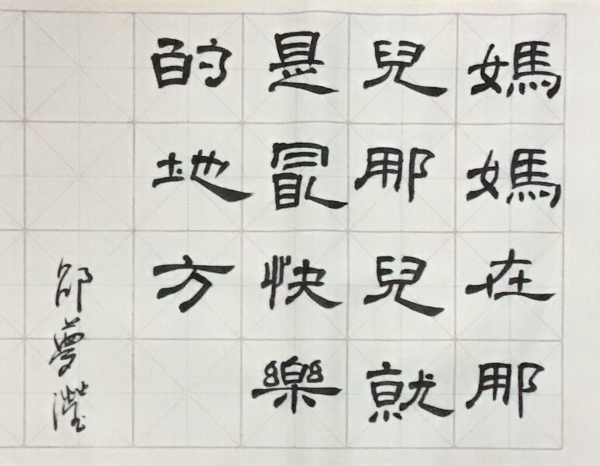 媽媽在那
兒那兒就
是最快樂
的地方
邵夢瀅